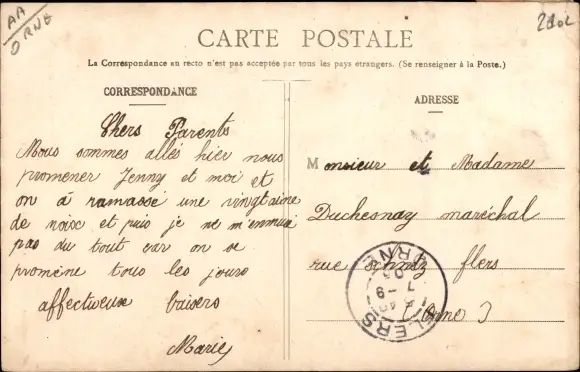 AA
ORNE
CARTE POSTALE
La Correspondance au recto n'est pas acceptée par tous les pays étrangers. (Se renseigner à la Poste.)
CORRESPONDANCE
Chers Parents
Nous sommes allés hier nous
promener Jenny et moi et
on á ramassé une vingtaine
de noix et puis je ne m'ennuie
pas du tout car on se
promène tous les jours
affectueux baisers
Marie
ADRESSE
Monsieur et Madame
Duchesnay maréchal
rue flers
(Orne)
FLERS
ORNE